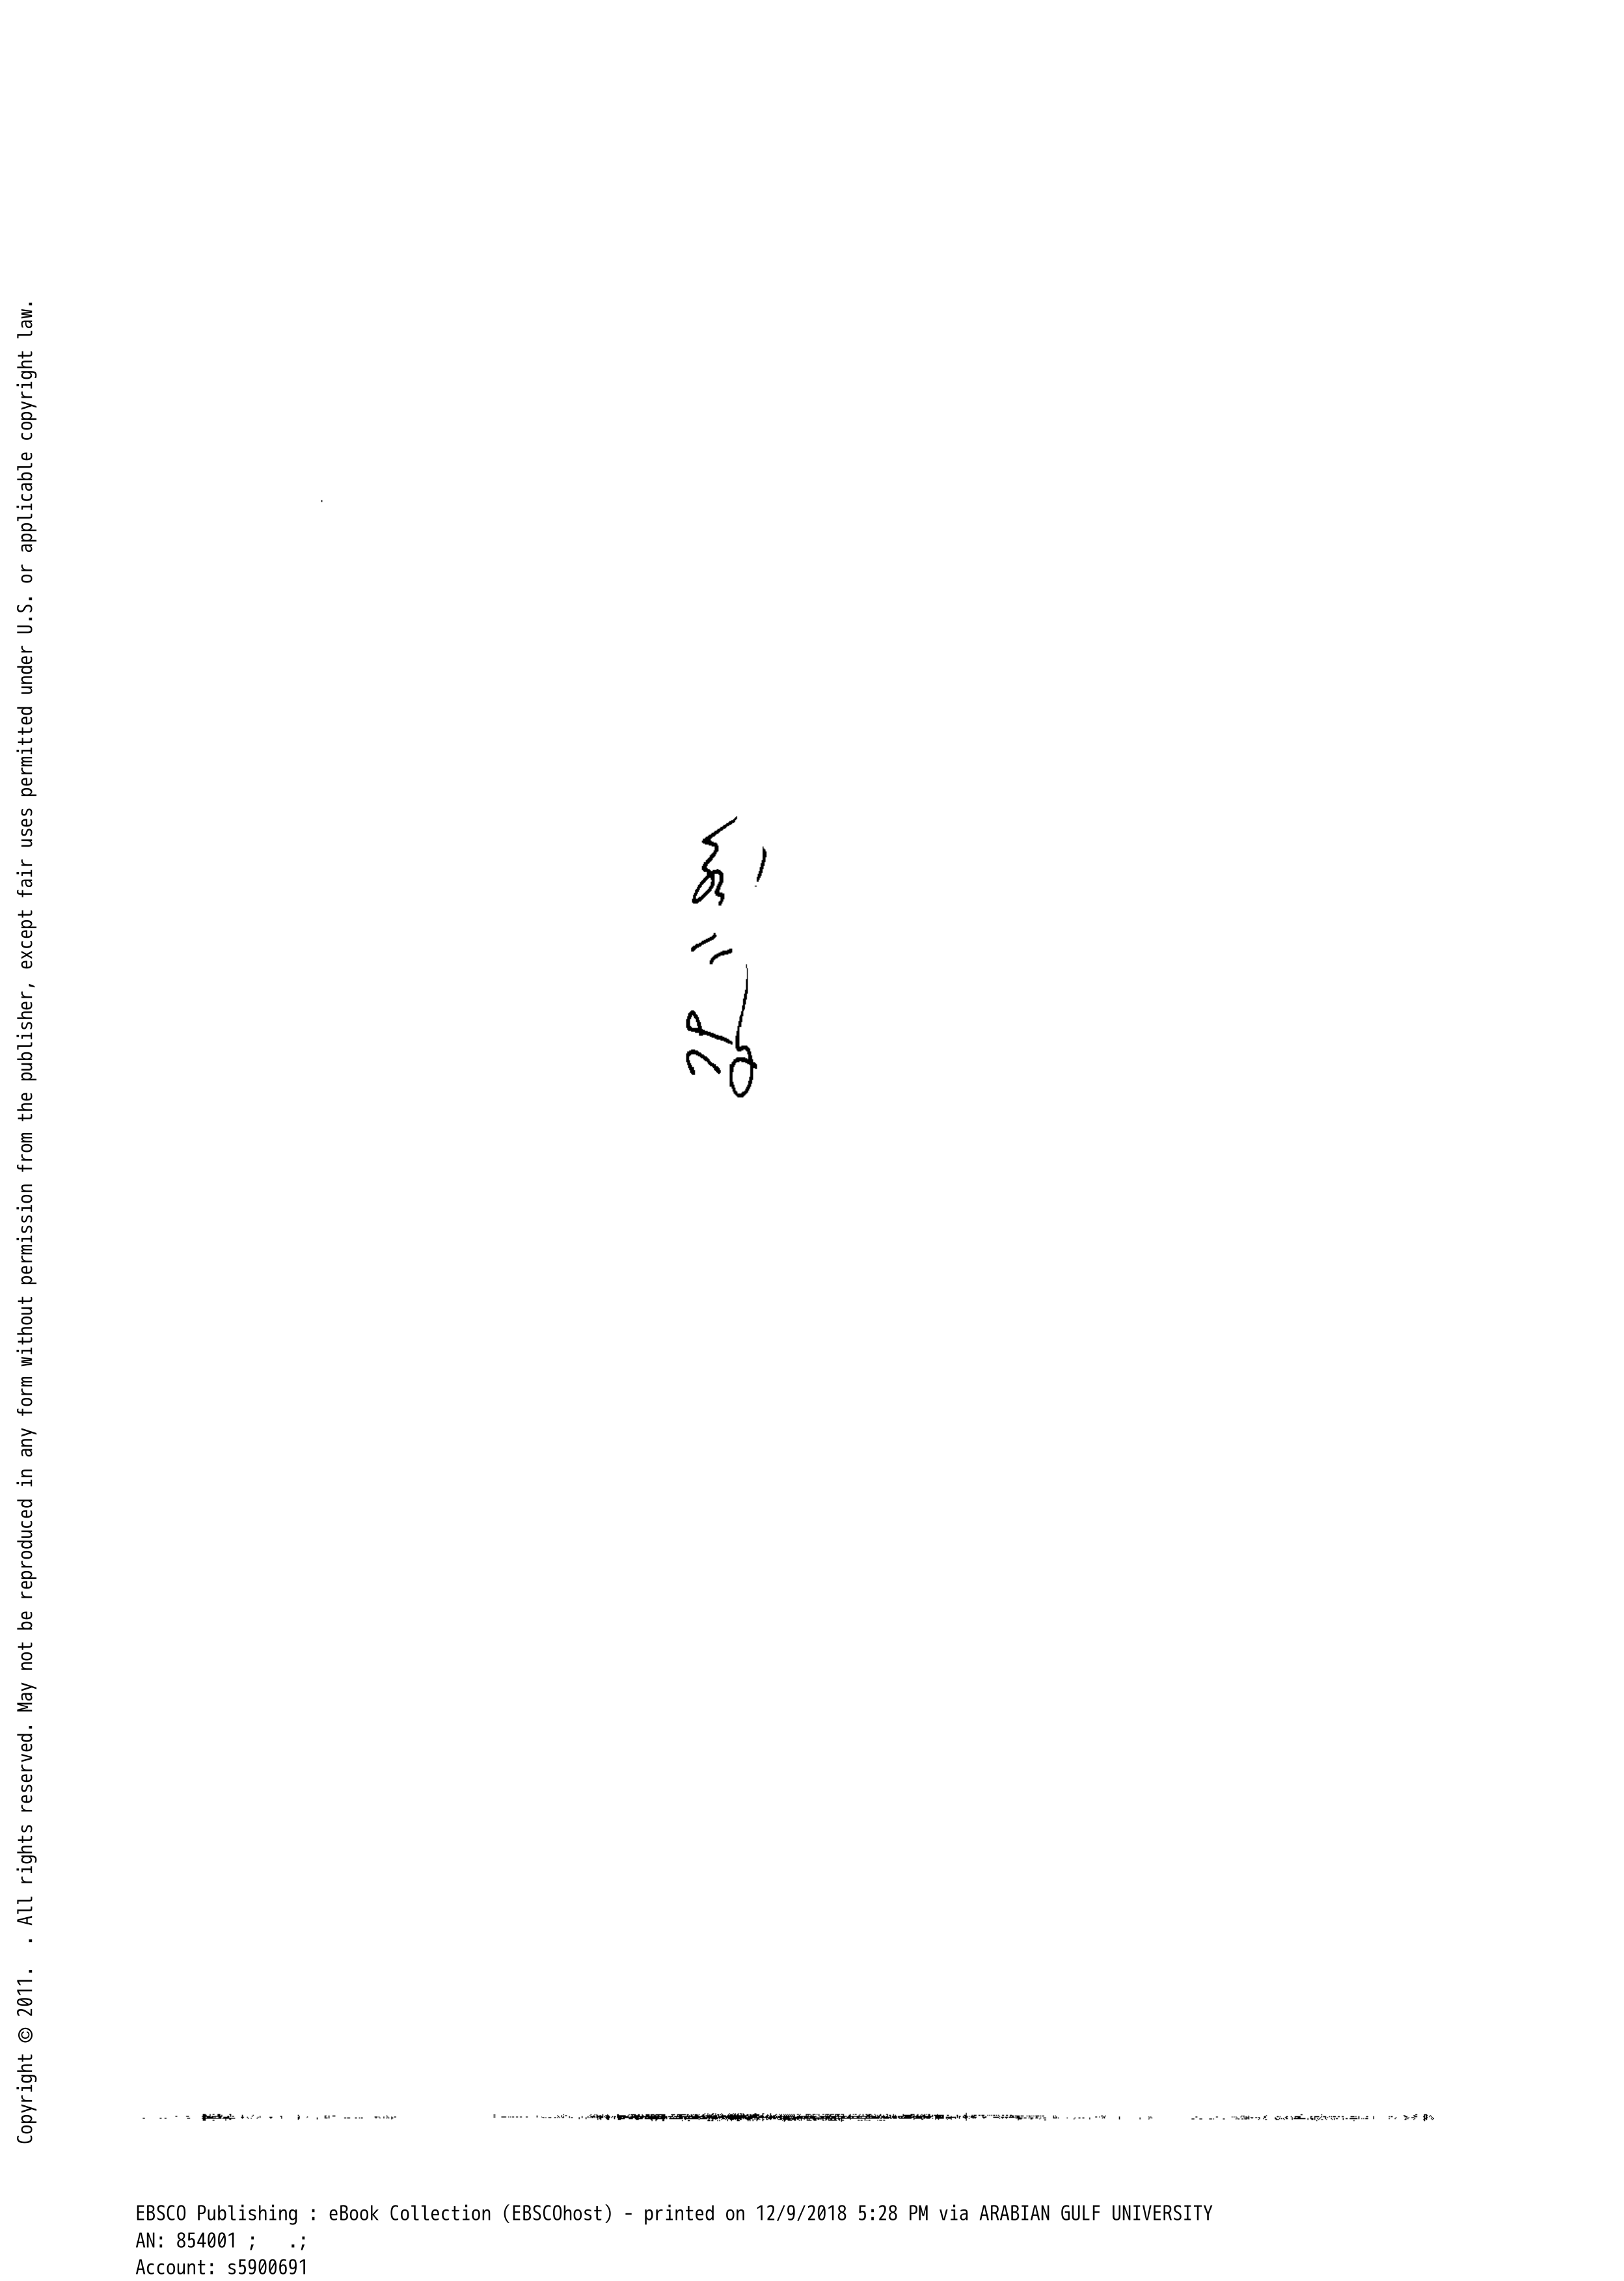 Copyright © 2011. . All rights reserved. May not be reproduced in any form without permission from the publisher, except fair uses permitted under U.S. or applicable copyright law.
EBSCO Publishing : eBook Collection (EBSCOhost) - printed on 12/9/2018 5:28 PM via ARABIAN GULF UNIVERSITY
AN: 854001 ; .;
Account: s5900691